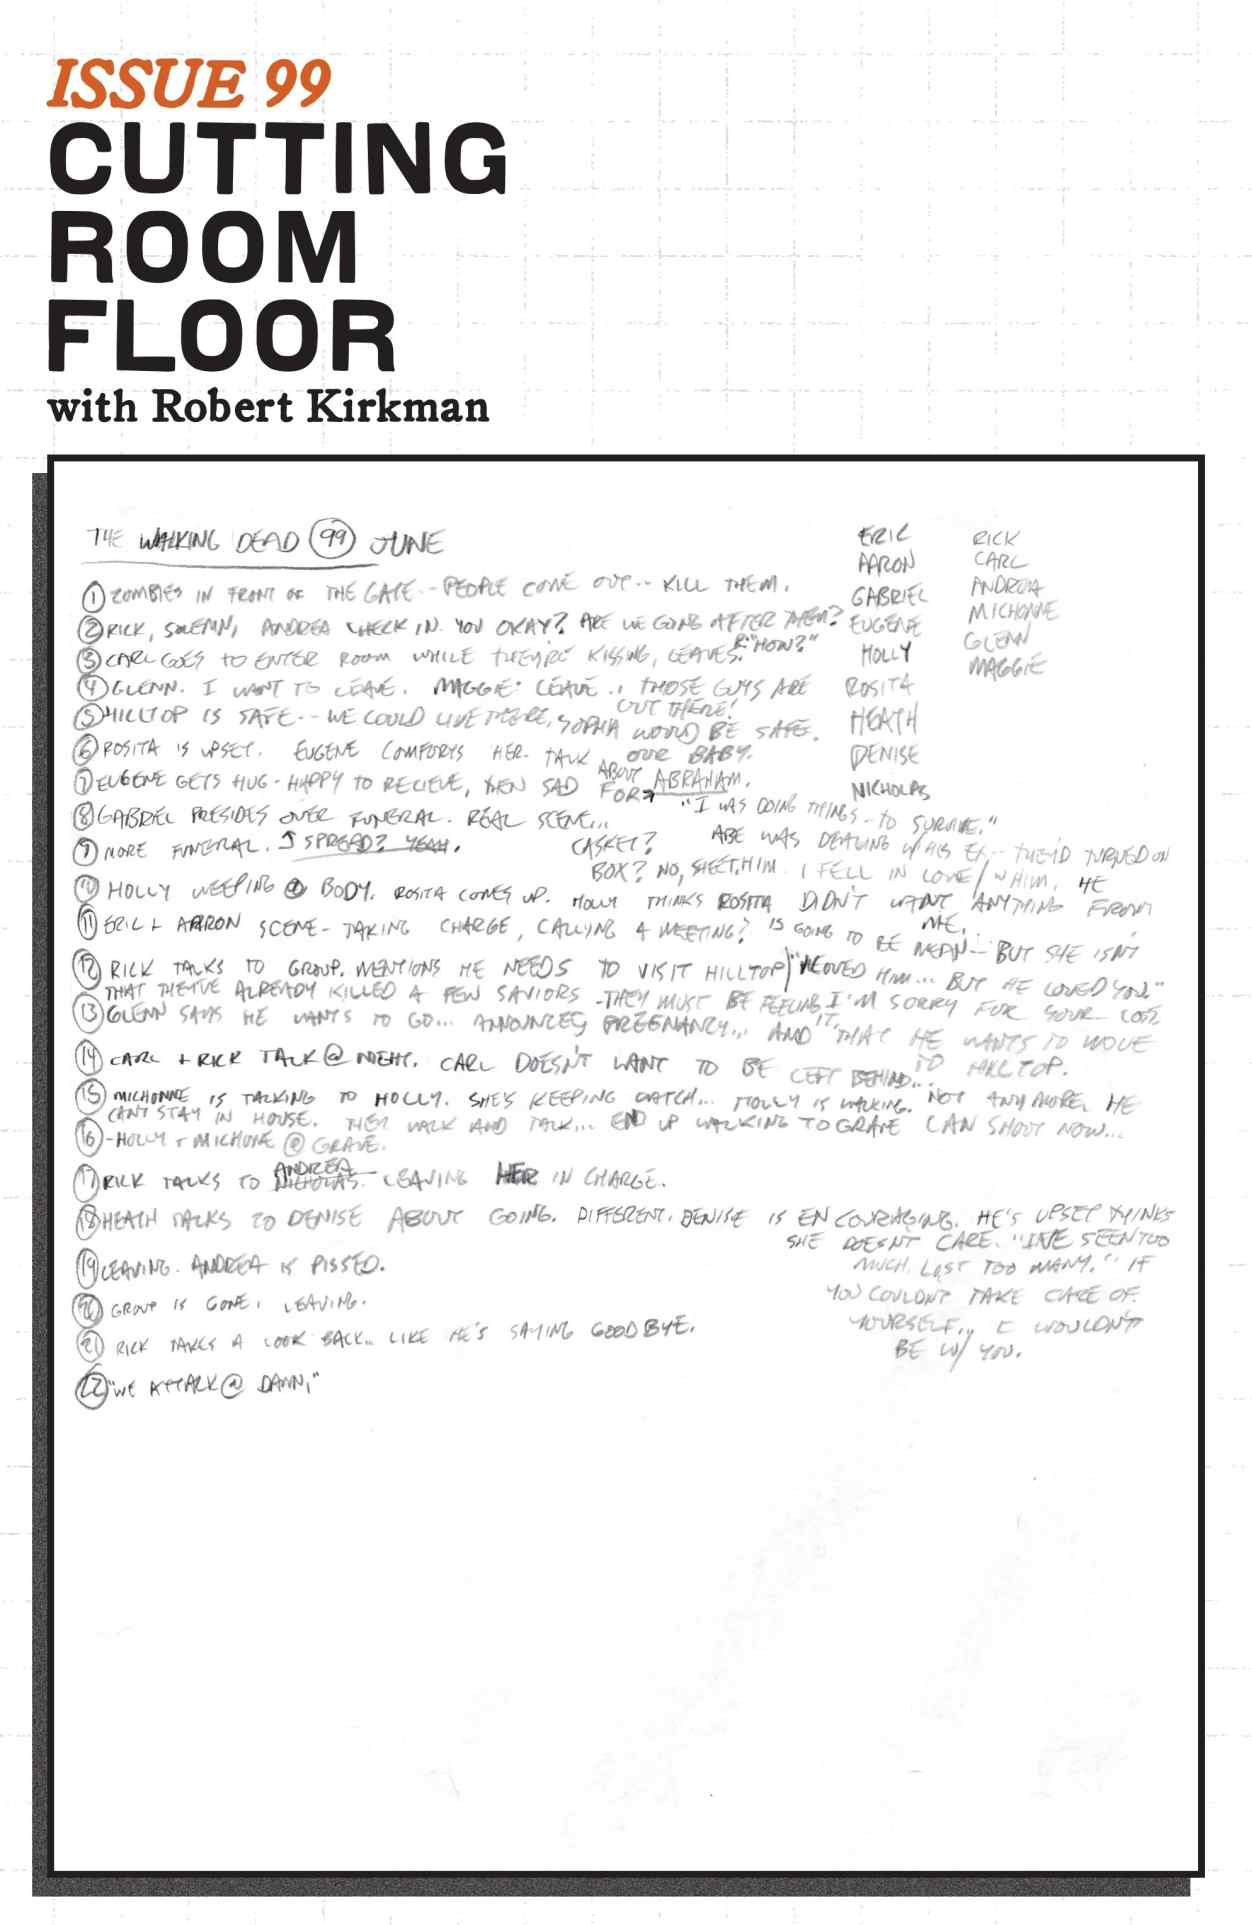 ISSUE 99
CUTTING
ROOM
FLOOR
with Robert Kirkman
THE WALKING DEAD 99 JUNE
ERIC
AARON
GABRIEL
EUGENE
HOLLY
ROSITA
HEATH
DENISE
NICHOLAS
RICK
CARL
ANDREA
MICHONNE
GLENN
MAGGIE
1 ZOMBIES IN FRONT OF THE GATE -- PEOPLE COME OUT -- KILL THEM.
2 RICK, SOLEMN, ANDREA CHECK IN. YOU OKAY? ARE WE GOING AFTER THEM?
R: "HOW?"
3 CARL GOES TO ENTER ROOM WHILE THEY'RE KISSING, LEAVES.
4 GLENN. I WANT TO LEAVE. MAGGIE: LEAVE.. THOSE GUYS ARE
OUT THERE!
5 HILLTOP IS SAFE -- WE COULD LIVE THERE, SOPHIA WOULD BE SAFE.
OUR BABY.
6 ROSITA IS UPSET. EUGENE COMFORTS HER. TALK
ABOUT ABRAHAM.
7 EUGENE GETS HUG - HAPPY TO RECIEVE, THEN SAD FOR
8 GABRIEL PRESIDES OVER FUNERAL. REAL SCENE...
CASKET?
BOX? NO, SHEET.
9 MORE FUNERAL. SPREAD? YEAH.
10 HOLLY WEEPING @ BODY. ROSITA COMES UP. HOLLY THINKS ROSITA
IS GOING TO BE MEAN -- BUT SHE ISN'T
"I LOVED HIM... BUT HE LOVED YOU."
I'M SORRY FOR YOUR LOSS.
"I WAS DOING THINGS - TO SURVIVE."
ABE WAS DEALING W/ HIS EX -- THEY'D TURNED ON
HIM. I FELL IN LOVE W/ HIM. HE
DIDN'T WANT ANYTHING FROM
ME.
11 ERIC + AARON SCENE - TAKING CHARGE, CALLING A MEETING?
12 RICK TALKS TO GROUP. MENTIONS HE NEEDS TO VISIT HILLTOP
THAT THEY'VE ALREADY KILLED A FEW SAVIORS - THEY MUST BE FEELING
IT.
13 GLENN SAYS HE WANTS TO GO... ANNOUNCES PREGNANCY... AND THAT HE WANTS TO MOVE
TO HILLTOP.
14 CARL + RICK TALK @ NIGHT. CARL DOESN'T WANT TO BE LEFT BEHIND...
NOT ANYMORE, HE
CAN SHOOT NOW...
15 MICHONNE IS TALKING TO HOLLY. SHE'S KEEPING WATCH... HOLLY IS WALKING.
CAN'T STAY IN HOUSE. THEY WALK AND TALK... END UP WALKING TO GRAVE
16 - HOLLY + MICHONE @ GRAVE.
17 RICK TALKS TO NICHOLAS. ANDREA LEAVING HER IN CHARGE.
18 HEATH TALKS TO DENISE ABOUT GOING. DIFFERENT. DENISE IS ENCOURAGING. HE'S UPSET THINKS
SHE DOESN'T CARE. "I'VE SEEN TOO
MUCH. LOST TOO MANY." IF
YOU COULDN'T TAKE CARE OF
YOURSELF... I WOULDN'T
BE W/ YOU.
19 LEAVING. ANDREA IS PISSED.
20 GROUP IS GONE, LEAVING.
21 RICK TAKES A LOOK BACK.. LIKE HE'S SAYING GOODBYE.
22 "WE ATTACK @ DAWN,"